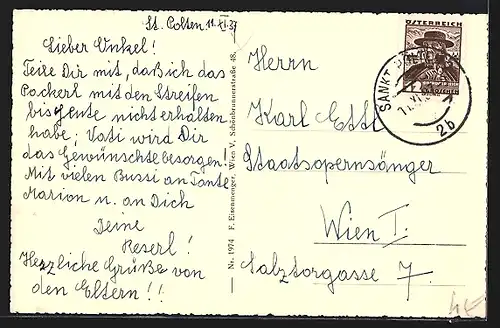 St. Pölten 11. XI. 37
Lieber Onkel!
Teile Dir mit, daß ich das
Packerl mit den Streifen
bis heute nicht erhalten
habe; Vati wird Dir
das Gewünschte besorgen!
Mit vielen Bussi an Tante
Marion u. an Dich
Deine
Reserl!
Herzliche Grüße von
den Eltern!!
Nr. 1974 F. Eisenmenger, Wien V, Schönbrunnerstraße 48.
ÖSTERREICH
12
SANKT PÖLTEN
2b
Herrn
Karl Ettl
Staatsopernsänger
Wien I.
Salztorgasse 7.